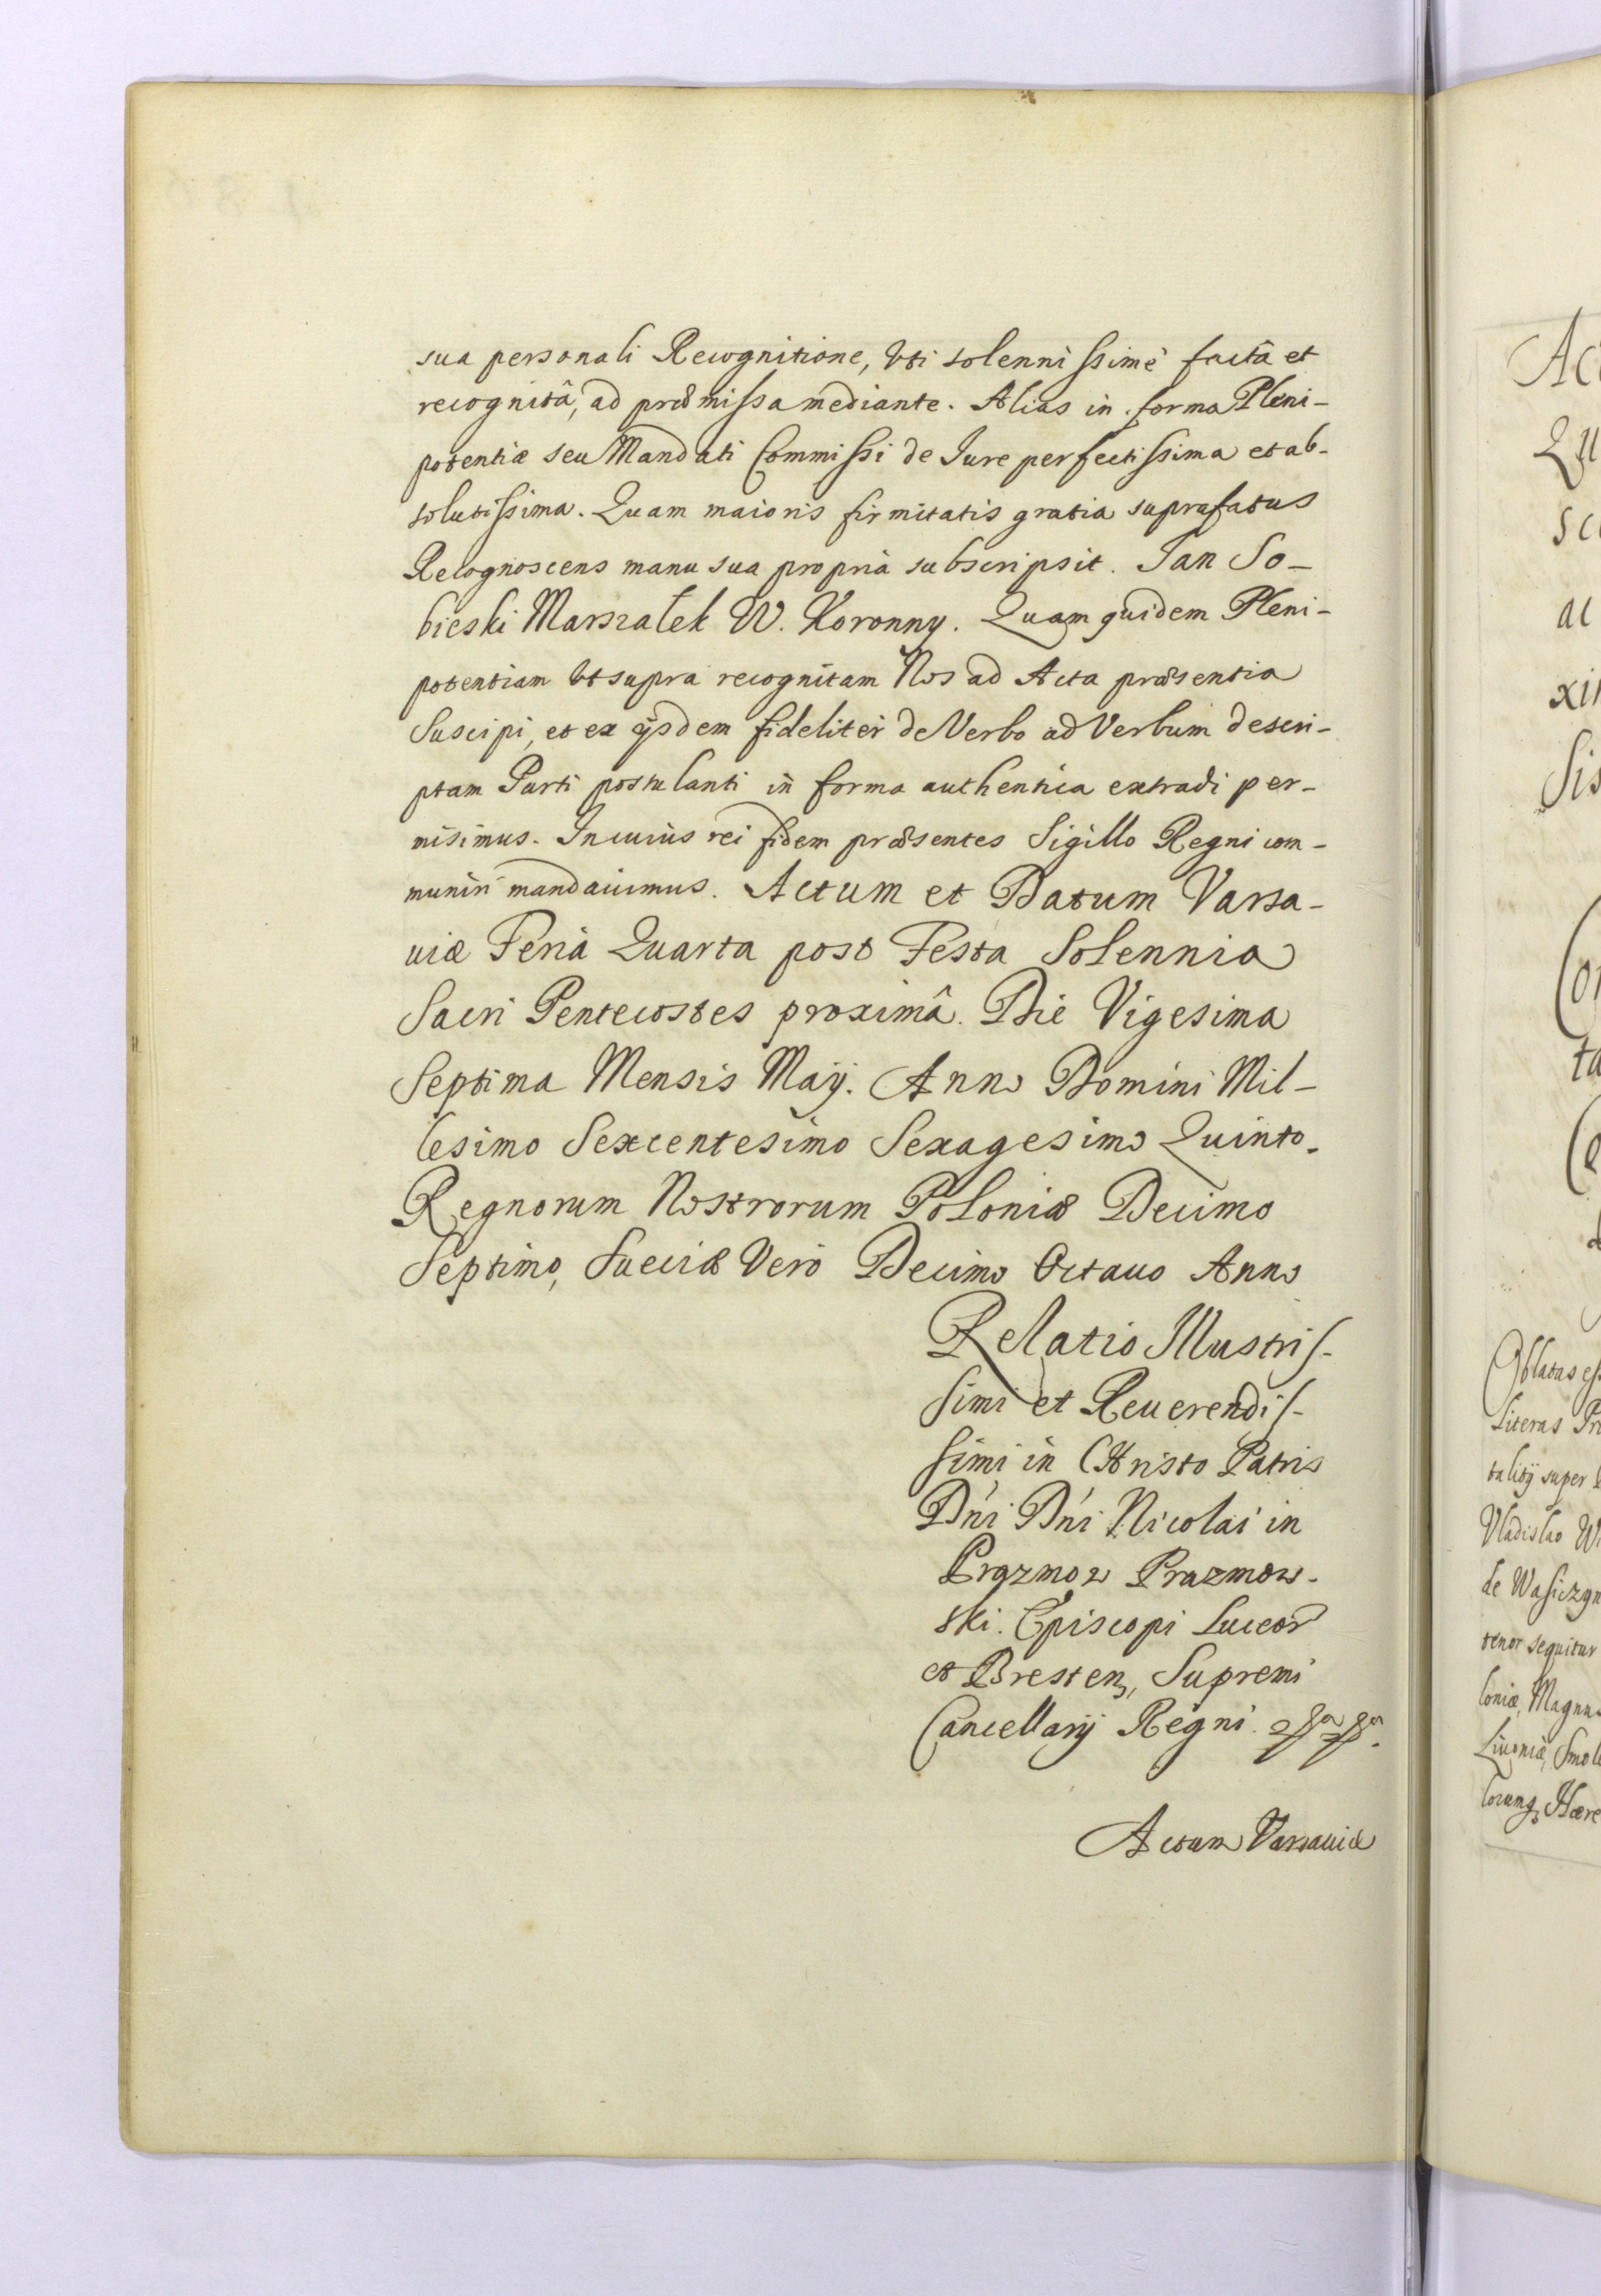 sua personali Recognitione, vti solennissimè factâ et
recognitâ, ad præmissa mediante. Alias in forma Pleni-
potentiæ seu Mandati Commissi de Iure perfectissima et ab-
solutissima. Quam maioris firmitatis gratia suprafatus
Recognoscens manu sua propria subscripsit. Jan So-
bieski Marszałek W. Koronny. Quam quidem Pleni-
potentiam vt supra recognitam Nos ad Acta præsentia
Suscipi, et ex ijsdem fideliter de Verbo ad Verbum descri-
ptam Parti postulanti in forma authentica extradi per-
misimus. In cuius rei fidem præsentes Sigillo Regni com-
muniri mandauimus. Actum et Datum Varsa-
uiæ Feria Quarta post Festa Solennia
Sacri Pentecostes proximâ. Die Vigesima
Septima Mensis Maij. Anno Domini Mil-
lesimo Sexcentesimo Sexagesimo Quinto.
Regnorum Nostrorum Poloniæ Decimo
Septimo, Sueciæ Vero Decimo Octauo Anno
Relatio Illustris-
simi et Reuerendis-
simi in Christo Patris
Dni Dni Nicolai in
Prazmow Prazmow-
ski. Episcopi Luceor
et Bresten, Supremi
Cancellarij Regni
Actum Varsauiæ
Oblatas
Literas
super
Vladislao
de
tenor sequitur
loniæ, Magnus
Liuoniæ,